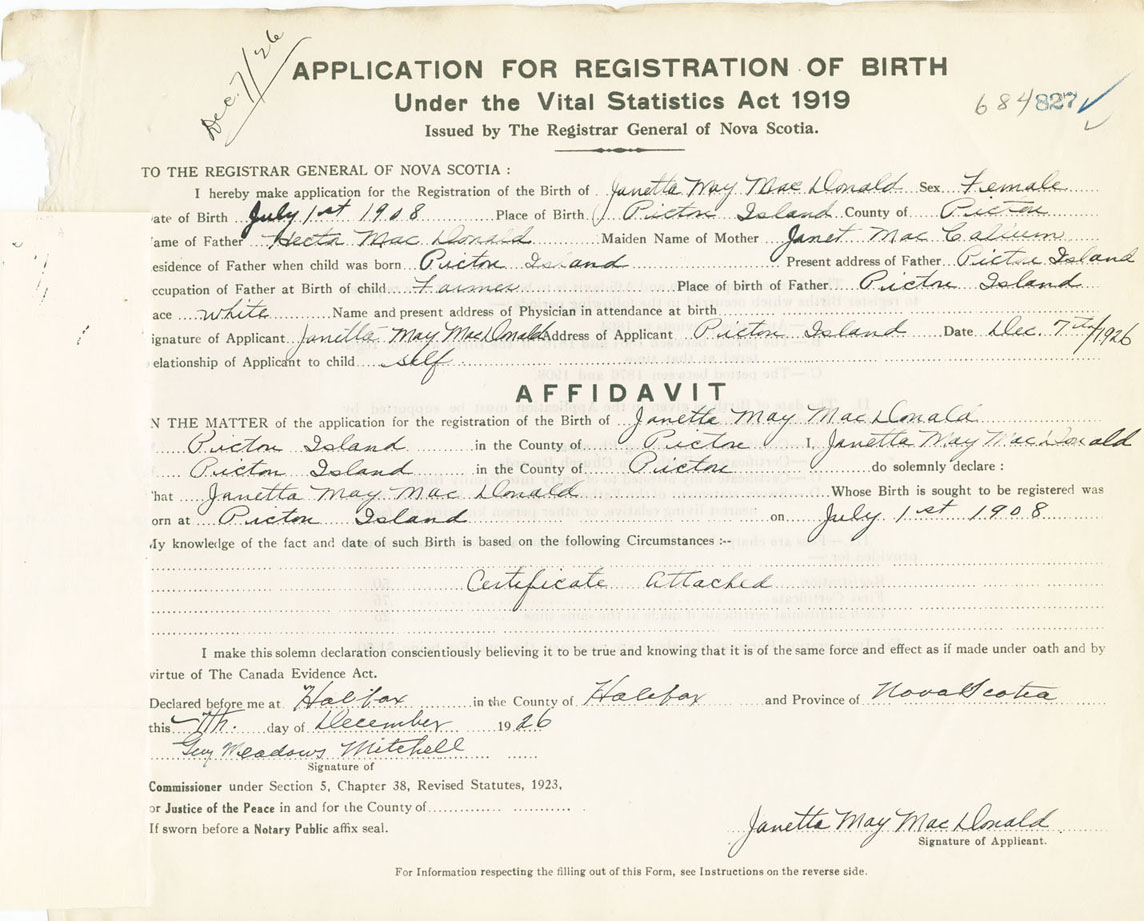 Dec. 7/26
APPLICATION FOR REGISTRATION OF BIRTH
Under the Vital Statistics Act 1919
684827
Issued by The Registrar General of Nova Scotia.
TO THE REGISTRAR GENERAL OF NOVA SCOTIA :
I hereby make application for the Registration of the Birth of Janetta May MacDonald Sex Female
ate of Birth July 1st 1908 Place of Birth Pictou Island County of Pictou
ame of Father Hector MacDonald Maiden Name of Mother Janet MacCallum
esidence of Father when child was born Pictou Island Present address of Father Pictou Island
ccupation of Father at Birth of child Farmer Place of birth of Father Pictou Island
ace white Name and present address of Physician in attendance at birth
ignature of Applicant Janetta May MacDonald Address of Applicant Pictou Island Date Dec 7th/1926
elationship of Applicant to child self
AFFIDAVIT
N THE MATTER of the application for the registration of the Birth of Janetta May MacDonald
Pictou Island in the County of Pictou I, Janetta May MacDonald
Pictou Island in the County of Pictou do solemnly declare :
hat Janetta May MacDonald Whose Birth is sought to be registered was
orn at Pictou Island on July 1st 1908
My knowledge of the fact and date of such Birth is based on the following Circumstances :--
Certificate Attached
I make this solemn declaration conscientiously believing it to be true and knowing that it is of the same force and effect as if made under oath and by
virtue of The Canada Evidence Act.
Declared before me at Halifax in the County of Halifax and Province of Nova Scotia
this 7th. day of December 1926
Guy Meadows Mitchell
Signature of
Commissioner under Section 5, Chapter 38, Revised Statutes, 1923,
or Justice of the Peace in and for the County of
If sworn before a Notary Public affix seal.
Janetta May MacDonald
Signature of Applicant.
For Information respecting the filling out of this Form, see Instructions on the reverse side.